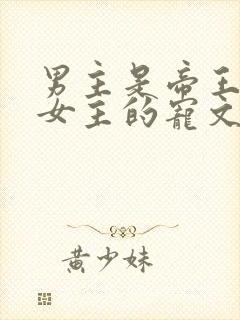 男主是帝王
女主的寵文
黄少妹